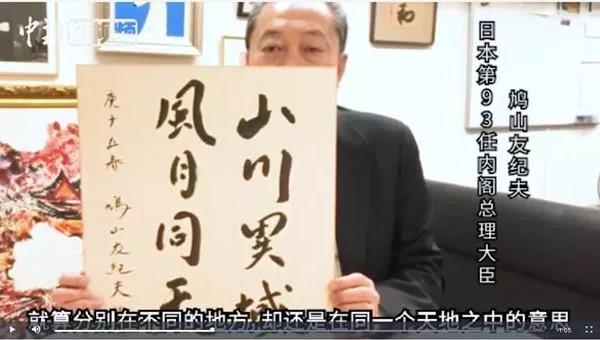 中新视频
和
鸠山友纪夫
日本第93任内阁总理大臣
山川異域
風月同天
庚子立春 鳩山友紀夫
就算分别在不同的地方,却还是在同一个天地之中的意思
1:05